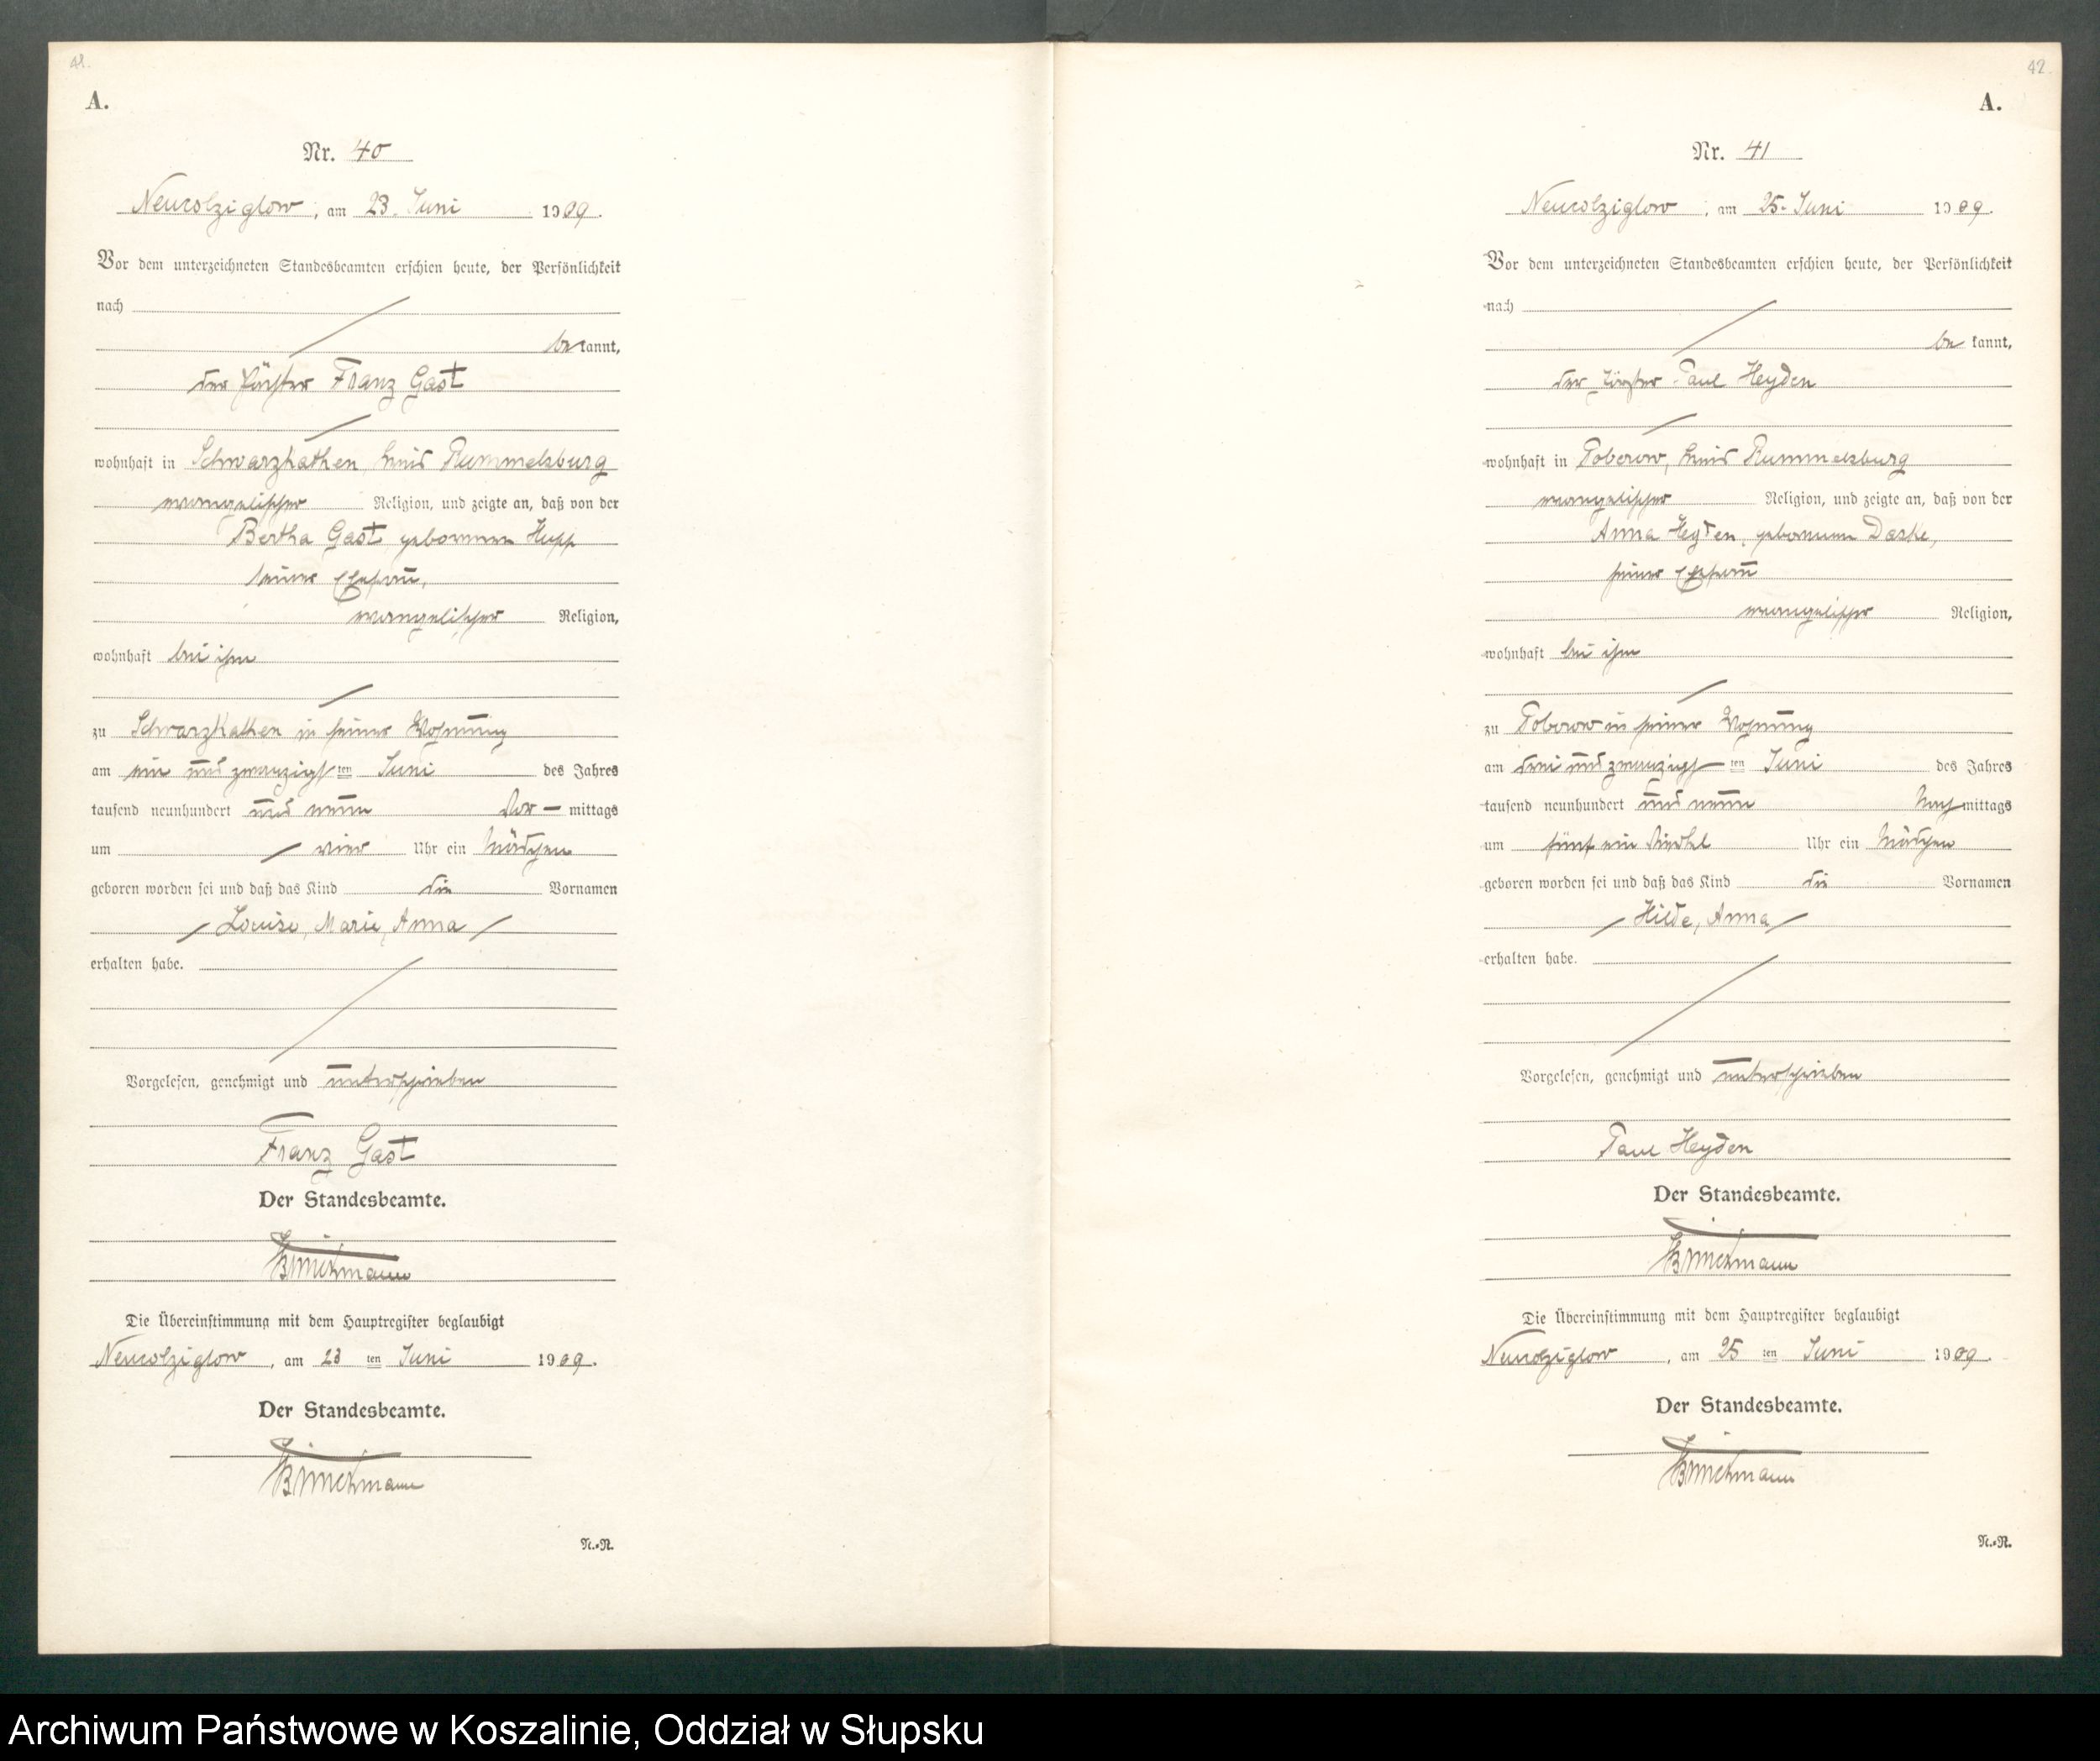 41.
A.
Nr. 40
Neucolziglow, am 23. Juni 1909.
Vor dem unterzeichneten Standesbeamten erschien heute, der Persönlichkeit
nach
be kannt,
der Förster Franz Gast
wohnhaft in Schwarzkathen, Kreis Rummelsburg
evangelischer Religion, und zeigte an, daß von der
Bertha Gast gebornen
seiner Ehefrau,
evangelischer Religion,
wohnhaft bei ihm
zu Schwarzkathen in seiner Wohnung
am ein und zwanzigsten Juni des Jahres
tausend neunhundert und neun Vor-mittags
um vier Uhr ein Mädchen
geboren worden sei und daß das Kind die Vornamen
Louise, Marie, Anna
erhalten habe.
Vorgelesen, genehmigt und unterschrieben
Franz Gast
Der Standesbeamte.
Die Übereinstimmung mit dem Hauptregister beglaubigt
Neucolziglow, am 23 ten Juni 1909.
Der Standesbeamte.
N.=R.
42.
A.
Nr. 41
Neucolziglow, am 25. Juni 1909.
Vor dem unterzeichneten Standesbeamten erschien heute, der Persönlichkeit
nach
be kannt,
der Paul Heyden
wohnhaft in Poberow, Kreis Rummelsburg
evangelischer Religion, und zeigte an, daß von der
Anna Heyden, gebornen Daske,
seiner Ehefrau
evangelischer Religion,
wohnhaft bei ihm
zu Poberow in seiner Wohnung
am drei und zwanzigsten Juni des Jahres
tausend neunhundert und neun Nachmittags
um fünf ein Viertel Uhr ein Mädchen
geboren worden sei und daß das Kind die Vornamen
Hilde, Anna
erhalten habe.
Vorgelesen, genehmigt und unterschrieben
Paul Heyden
Der Standesbeamte.
Die Übereinstimmung mit dem Hauptregister beglaubigt
Neucolziglow, am 25 ten Juni 1909.
Der Standesbeamte.
N.=R.
Archiwum Państwowe w Koszalinie, Oddział w Słupsku